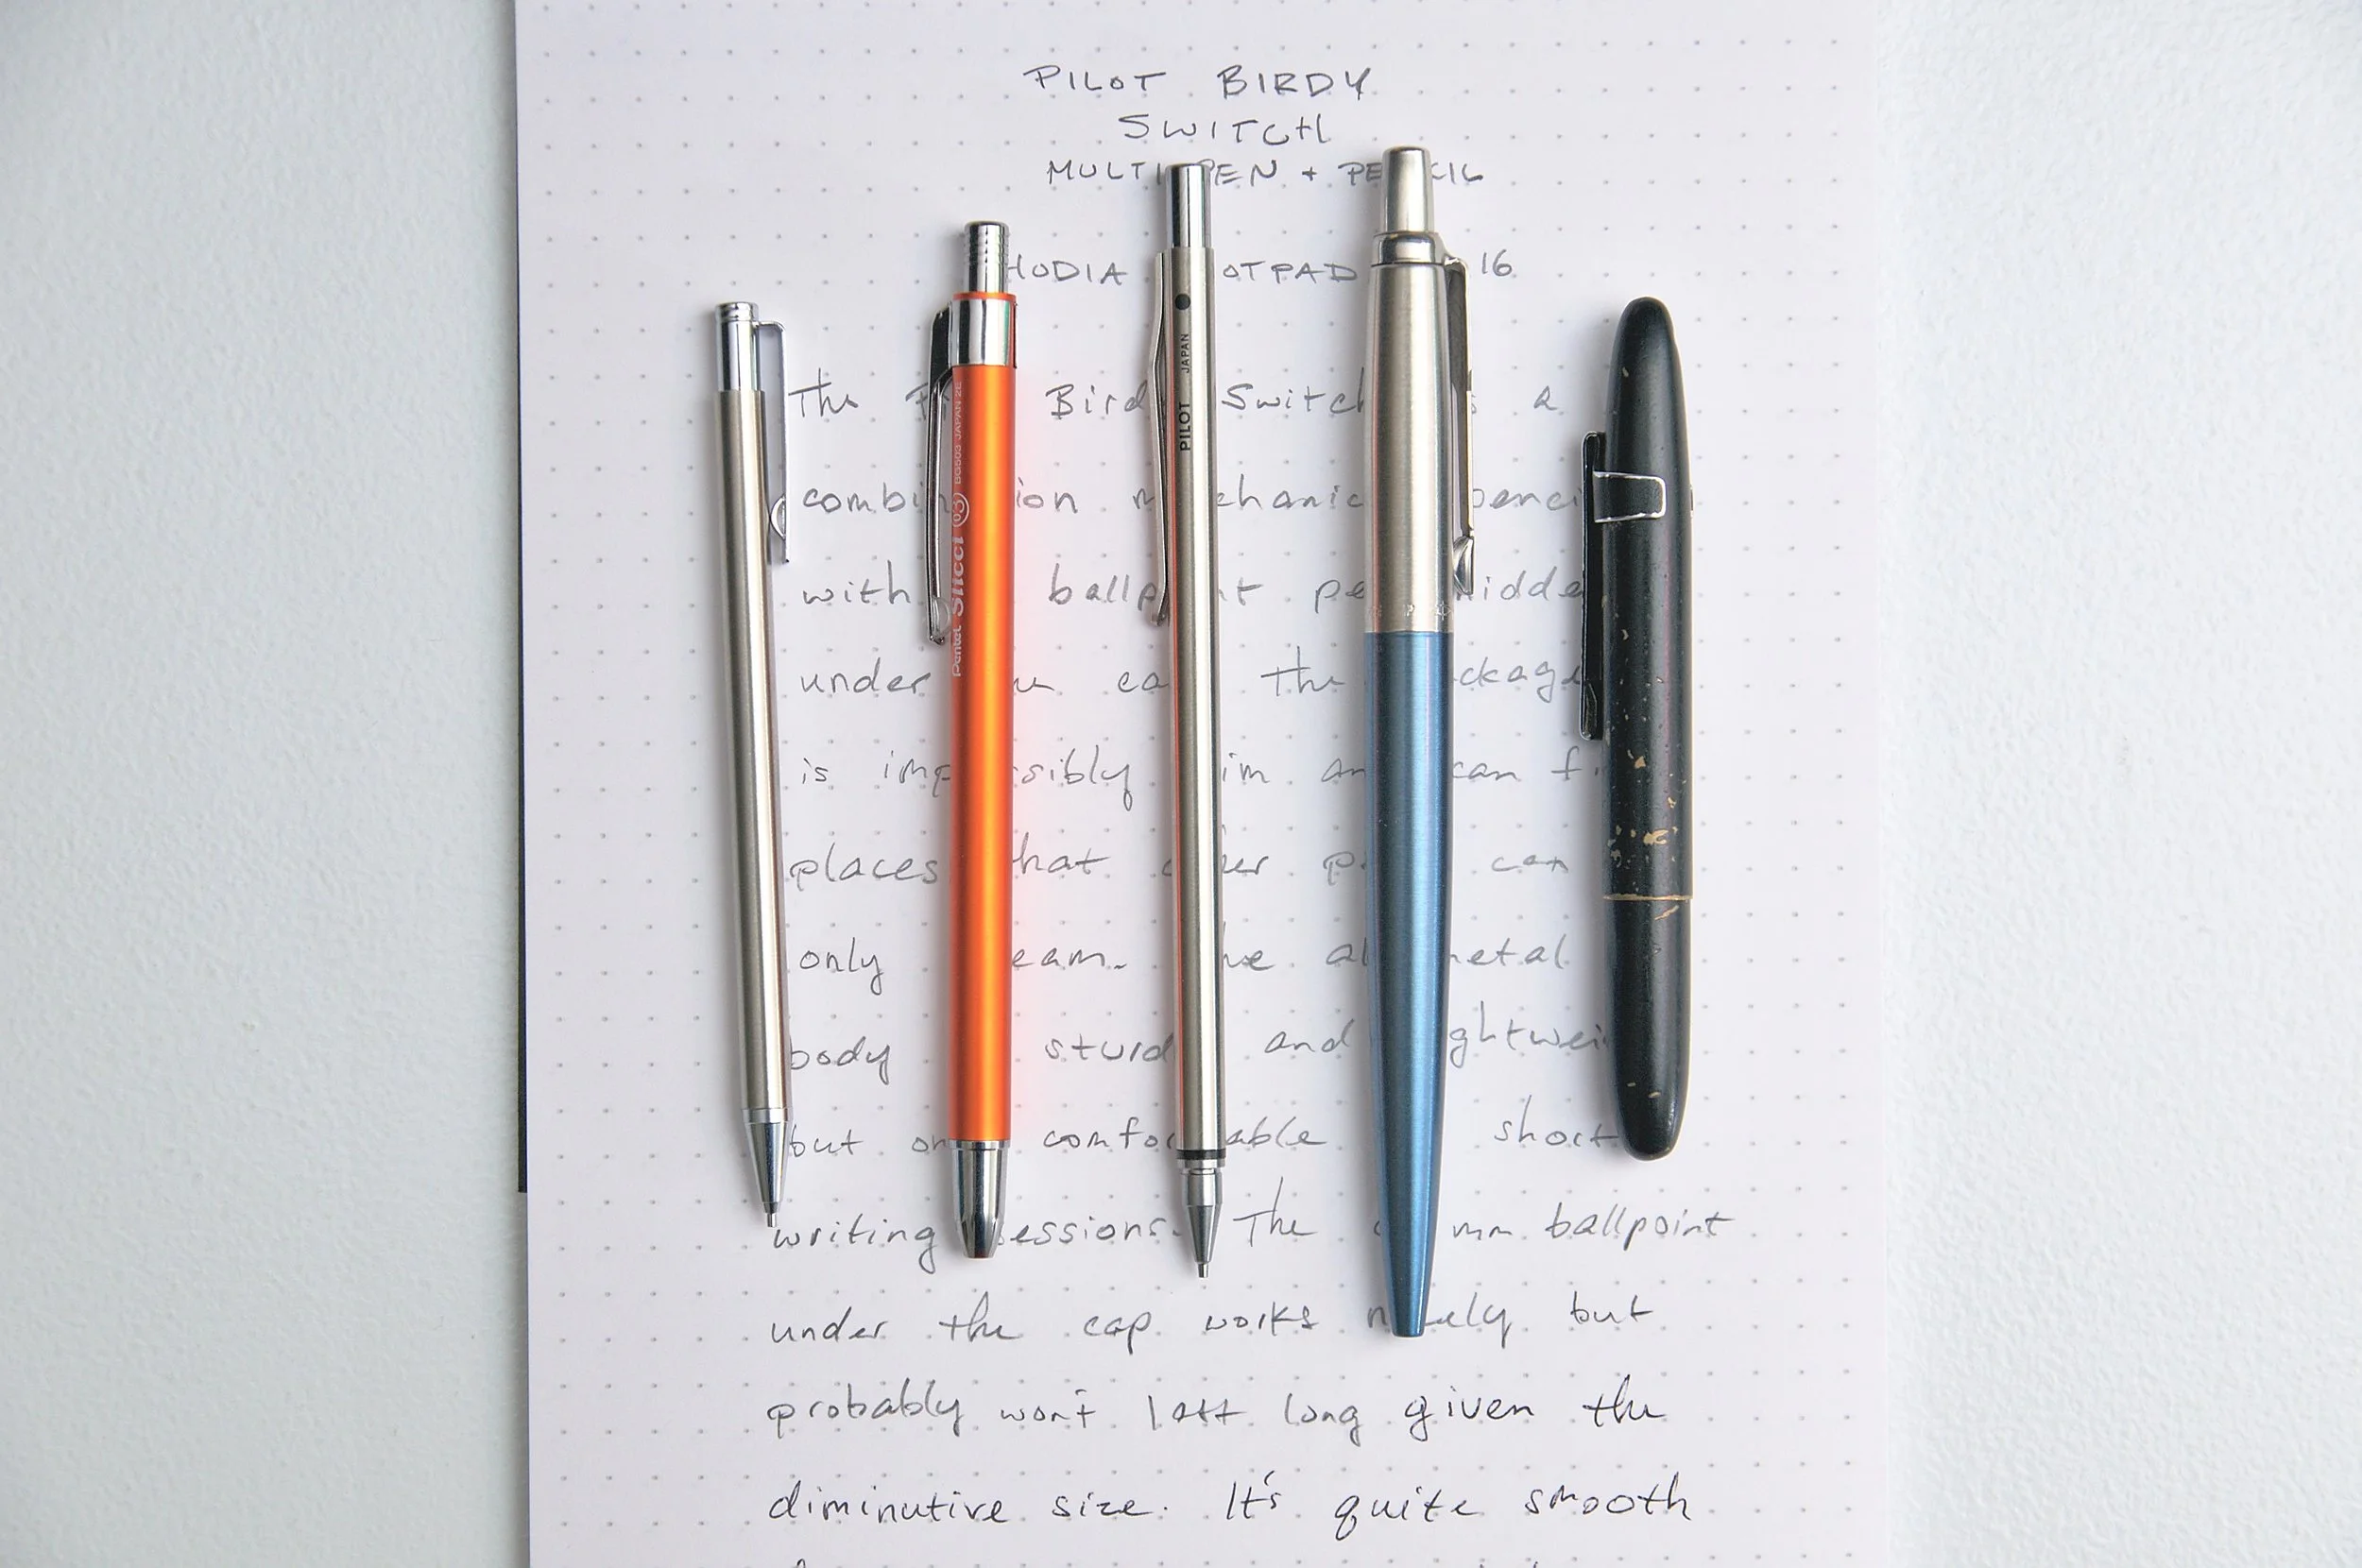 PILOT BIRDY
SWITCH
MULTI PEN + PE CIL
HODIA OTPAD 16
The Bird Switch a
combin ion chanic penci
with ballp t pe idde
under ca The ckage
is imp sibly im an can f
places hat er p can
only eam. he al metal
body sturd and ghtwei
but on comfo able short
writing essions. The mm ballpoint
under the cap works n ely but
probably won't last long given the
diminutive size. It's quite smooth
Pentel Slicci 03 BG603 JAPAN 2E
PILOT JAPAN